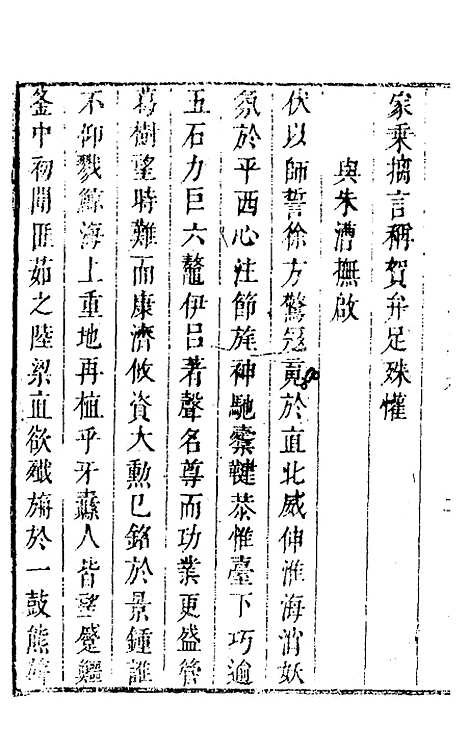 家乘摛言稱賀弁足殊懽
與朱漕撫啟
伏以師誓徐方驚寇競於直北威伸淮海消妖
氛於平西心注節旄神馳櫜鞬恭惟臺下巧逾
五石力巨六鼇伊呂著聲名尊而功業更盛管
葛樹望時難而康濟攸資大勲已銘於景鍾誰
不仰戮鯨海上重地再植乎牙纛人皆望躄鱷
釜中初聞匪茹之陸梁直欲殲旃於一鼓熊